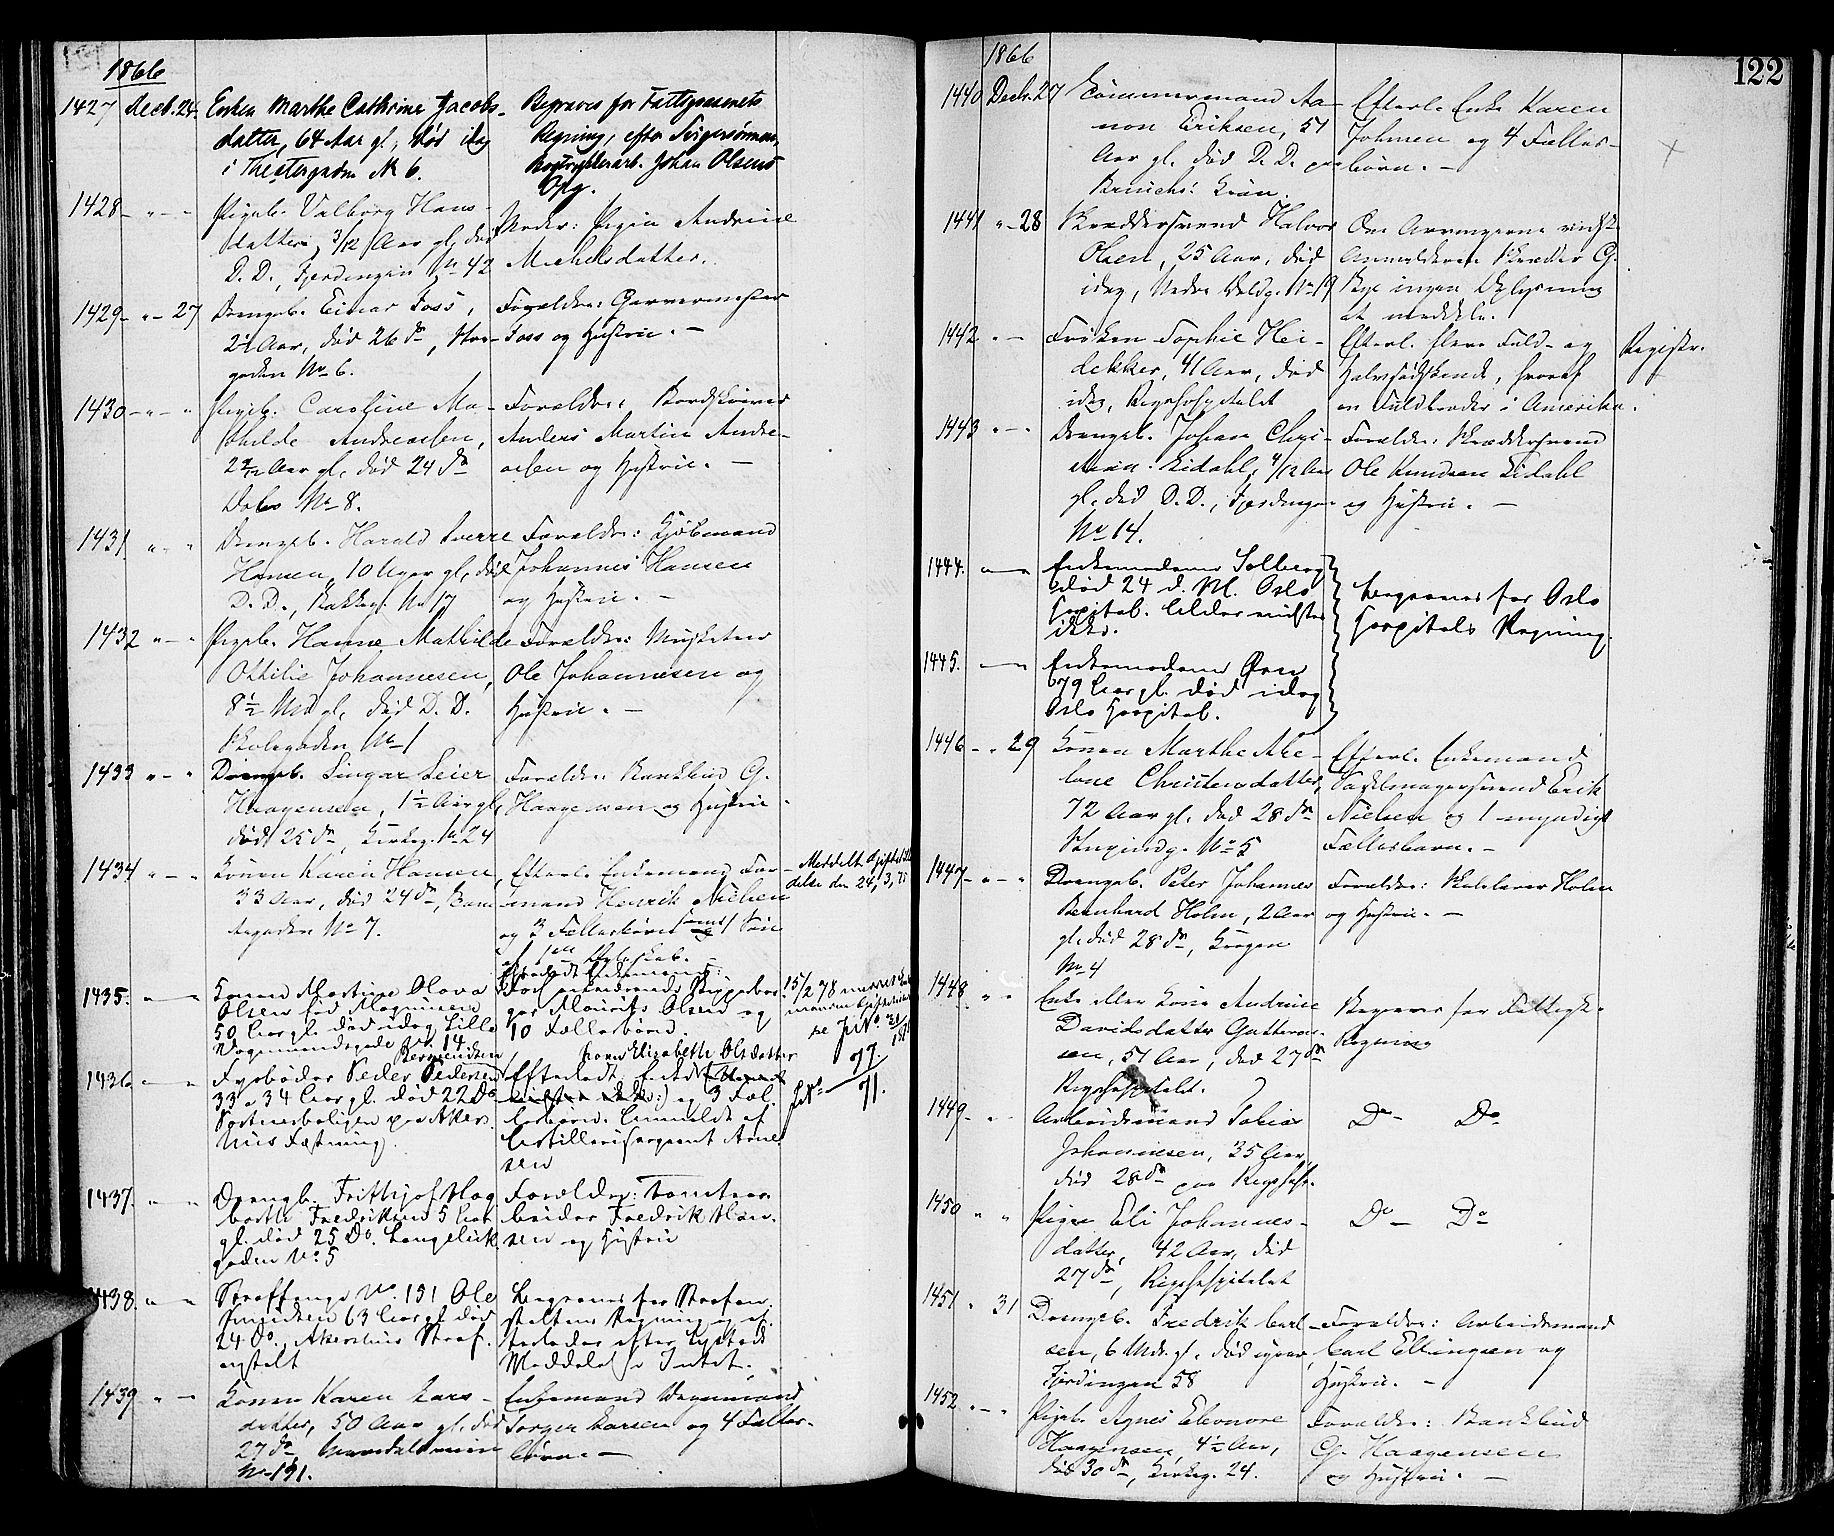 1866
1427 Decb. 24. Enken Marthe Cathrine Jacobs-
datter, 64 Aar gl, død idag
i Theatergaden N 6.
Begraves for Fattigvæsenets
Regning, efter Svigersønnen,
Bogtrykkerarb. Johan Olsens
Opg.
1428 - " - - Pigeb. Valborg Hans-
datter, 3/12 Aar gl, død
D. D., Fjerdingen No 42
Moder: Pigen Andrine
Michelsdatter.
1429 - " - 27 Drengeb. Einar Foss,
2½ Aar, død 26 do,
gaden No 6.
Forældre: Garvermester
Foss og Hustru. -
1430 - " - " Pigeb. Caroline Ma-
thilde Andreasen,
Aar gl, død 24 do
Oslo No 8.
Forældre: Bordskriver
Anders Martin Andre-
asen og Hustru. -
1431 " - " Drengeb. Harald Sverre
Hansen, 10 Uger gl, død
D. D., Bakkeg. No 17
Forældre: Kjøbmand
Johannes Hansen
og Hustru. -
1432 " - " Pigeb. Hanna Mathilde
Ottilie Johannesen,
8½ Md gl, død D. D.
Skolegaden No 1
Forældre: Musketeer
Ole Johannesen og
Hustru. -
1433 " - " Drengeb. Singar Seier
Haagensen, 1½ Aar gl,
død 25 do, Kirkeg. No 24
Forældre: Bankbud G.
Haagensen og Hustru -
1434 " - " Konen Karen Hansen,
33 Aar, død 24 do,
gaden No 7.
Efterl. Enkemand For-
mand Henrik Nielsen
og 3 Fællesbørn samt 1 Søn
af 1ste Ægteskab. -
Meddelt Skiftetil-
delse den 24/3,
1435. Konen Martine Olava
Olsen fød Magnusen
50 Aar gl. død idag Lille
Vognmandsgade No 14
Efterladt Enkemand:
Mouritz Olsen og
10 Fællesbørn.
15/2 78
se JNo
1436 Fyrbøder Peder Pedersen
Berg
33 a 34 Aar gl. død 22 Do
Portnerboligen paa Akers-
huus Fæstning.
Efterladt Enke
Elisabeth Olsdatter
vidstes ikke:) og 3 Fæl-
lesbørn. Anmeldt af
Artillerisergeant Arne-
sen
JNo 77.
71.
1437. " " Drengb. Frithjof Hag-
barth Fredriksen 5 Aar
gl. død 25 Do. Langeliik
gaden No 5
Forældre: Tomtear-
beider Fredrik Han-
sen og Hustru
1438. " " Straffange No. 191 Ole
Knudsen 63 Aar gl. død
24 Do., Akershus Straf-
anstalt
Begraves for Strafan-
staltens Regning og ef-
terlader efter
Meddelelse Intet.
1439 " - Konen Karen Lars-
datter, 50 Aar gl. død
27 do,
No 191.
Enkemand Vognmand
Jørgen Larsen og 4 Fælles-
børn. -
122
1866
1440 Decbr. 27 Tømmermand Aa-
non Eriksen, 51
Aar gl. død D. D. paa
Efterl. Enke Karen
Johnsen og 4 Fælles-
børn. -
1441 " - 28 Skræddersvend Halvor
Olsen, 25 Aar, død
idag, Nedre Voldg. No 19
Om Arvingerne vidste
Anmelderen Skrædder G.
Bye ingen Oplysning
at meddele.
1442 " - Frøken Sophie Hei-
dekker, 41 Aar, død
idag, Rigshospitalet
Efterl. flere Fuld- og
Halvsødskende, hvoraf
en Fuldbroder i Amerika.
Registr.
1443 " - Drengeb. Johan Chri-
stian Lidahl, 4/12 Aar
gl. død D. D., Fjerdingen
No 14.
Forældre: Skræddersvend
Ole Knudsen Lidahl
og Hustru. -
1444. Enkemadame Solberg
død 24 d. M. Oslo
Hospital. Alder vidstes
ikke.
Begraves for Oslo
Hospitals Regning.
1445. Enkemadame Øren
79 Aar gl. død idag
Oslo Hospital.
1446 - " 29 Konen Marthe Ale-
lone Christensdatter,
72 Aar gl. død 28 do
No 5
Efterl. Enkemand
Sadelmagersvend Erik
Nielsen og 1 myndigt
Fællesbarn. -
1447 - " - " Drengeb. Peter Johannes
Bernhard Holm, 2 Aar
gl. død 28 do, Krogen
No 4
Forældre: Holm
og Hustru. -
1448 " " Enke eller Kone Andrine
Davidsdatter Gutterm-
sen, 51 Aar, død 27 do
Rigshospitalet.
Begraves for Fattigv.
Regning
1449 - " Arbeidsmand Tobias
Johannesen, 35 Aar,
død 28 do paa Rigshosp.
Do - Do
1450 " " Pigen Eli Johannes-
datter, 42 Aar, død
27 do, Rigshospitalet
Do - Do
1451 " 31 Drengeb. Fredrik Carl-
sen, 6 Mdr. gl. død igaar,
Fjerdingen 58
Forældre: Arbeidsmand
Carl Ellingsen og
Hustru. -
1452 " - " Pigeb. Agnes Eleonore
Haagensen, 4½ Aar,
død 30 do, Kirkeg. 24.
Forældre: Bankbud
G. Haagensen
og Hustru. -